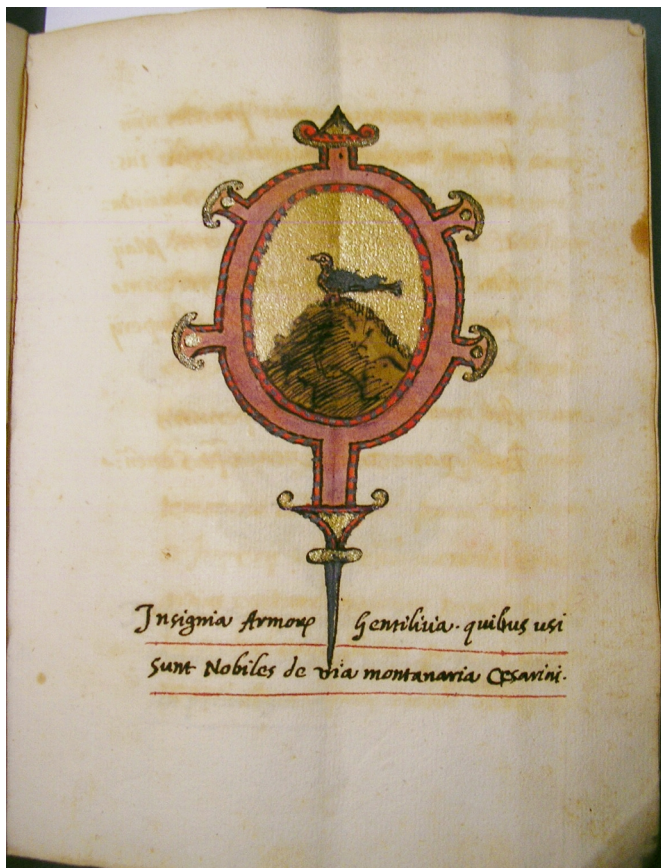 Insignia Armoꝝ Gentilitia · quibus usi
sunt Nobiles de via montanaria Cesarini·